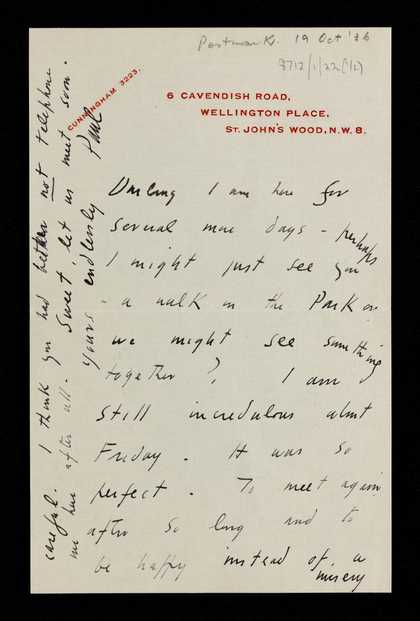 Postmark. 19 Oct '36
8712/1/22 (1/2)
CUNNINGHAM 3223.
6 CAVENDISH ROAD,
WELLINGTON PLACE,
ST. JOHN'S WOOD, N.W. 8.
Darling I am here for
several more days - perhaps
I might just see you
- a walk in the Park or
we might see something
together? I am
still incredulous about
Friday. It was so
perfect. To meet again
after so long and to
be happy instead of a
misery
careful. I think you had better not telephone
me here after all. Sweet, let us meet soon.
Yours endlessly Paul